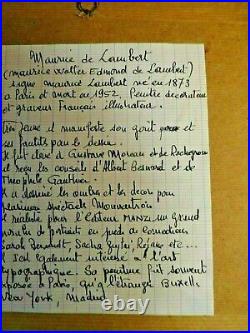 Maurice de Lambert
(maurice Walter Edmond de Lambert)
signe maurice Lambert né en 1873
à Paris et mort en 1952, Peintre décorateur
et graveur Français illustrateur.
Très Jeune il manifeste son goût pour et
ses facilités par le dessin.
Il fut élève de Gustave Moreau et de Rochegrosse
et reçu les conseils d'Albert Besnard et de
Théophile Gauthier.
a dessiné les costumes et les décors pour
plusieurs spectacles
réalisé pour l'éditeur MANZI un grand
nombre de portraits en pied de comédiens
Sarah Bernhardt, Sacha Guitry, Réjane etc...
également intéressé à l'art
typographique. Sa peinture fut souvent
exposée à Paris, qu'à l'étranger Buxelles
New York, Madrid